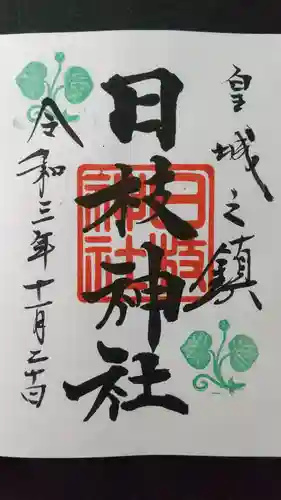 皇城之鎮
日枝神社
日枝神社
令和三年十一月二十日